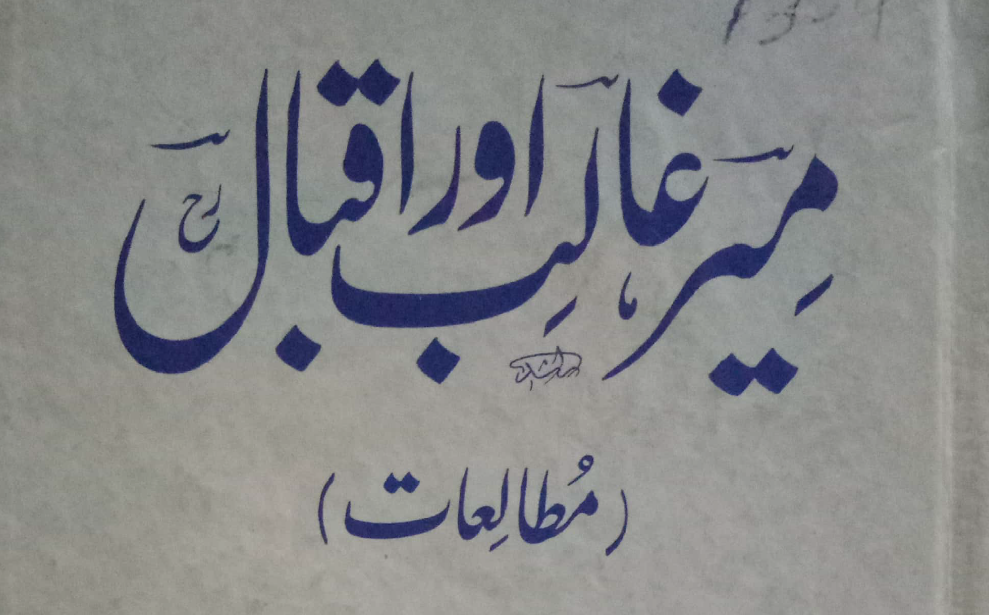 میر، غالب اور اقبالؒ
(مُطالِعات)